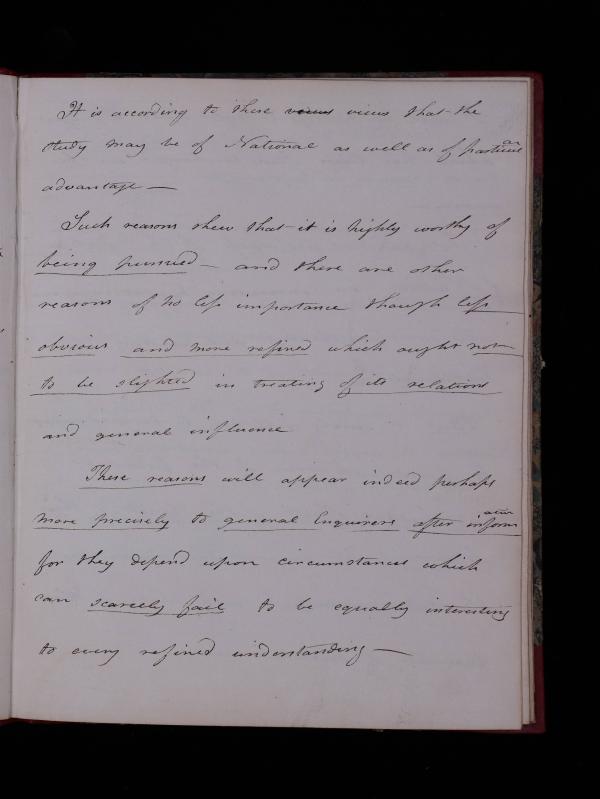 It is according to these views views that the
study may be of National as well as of particular
advantage —
Such reasons shew that it is highly worthy of
being pursued — and there are other
reasons of no less importance though less
obvious and more refined which ought not
to be slighted in treating of its relations
and general influence
These reasons will appear indeed perhaps
more precisely to general Enquirers after information
for they depend upon circumstances which
can scarcely fail to be equally interesting
to every refined understanding —